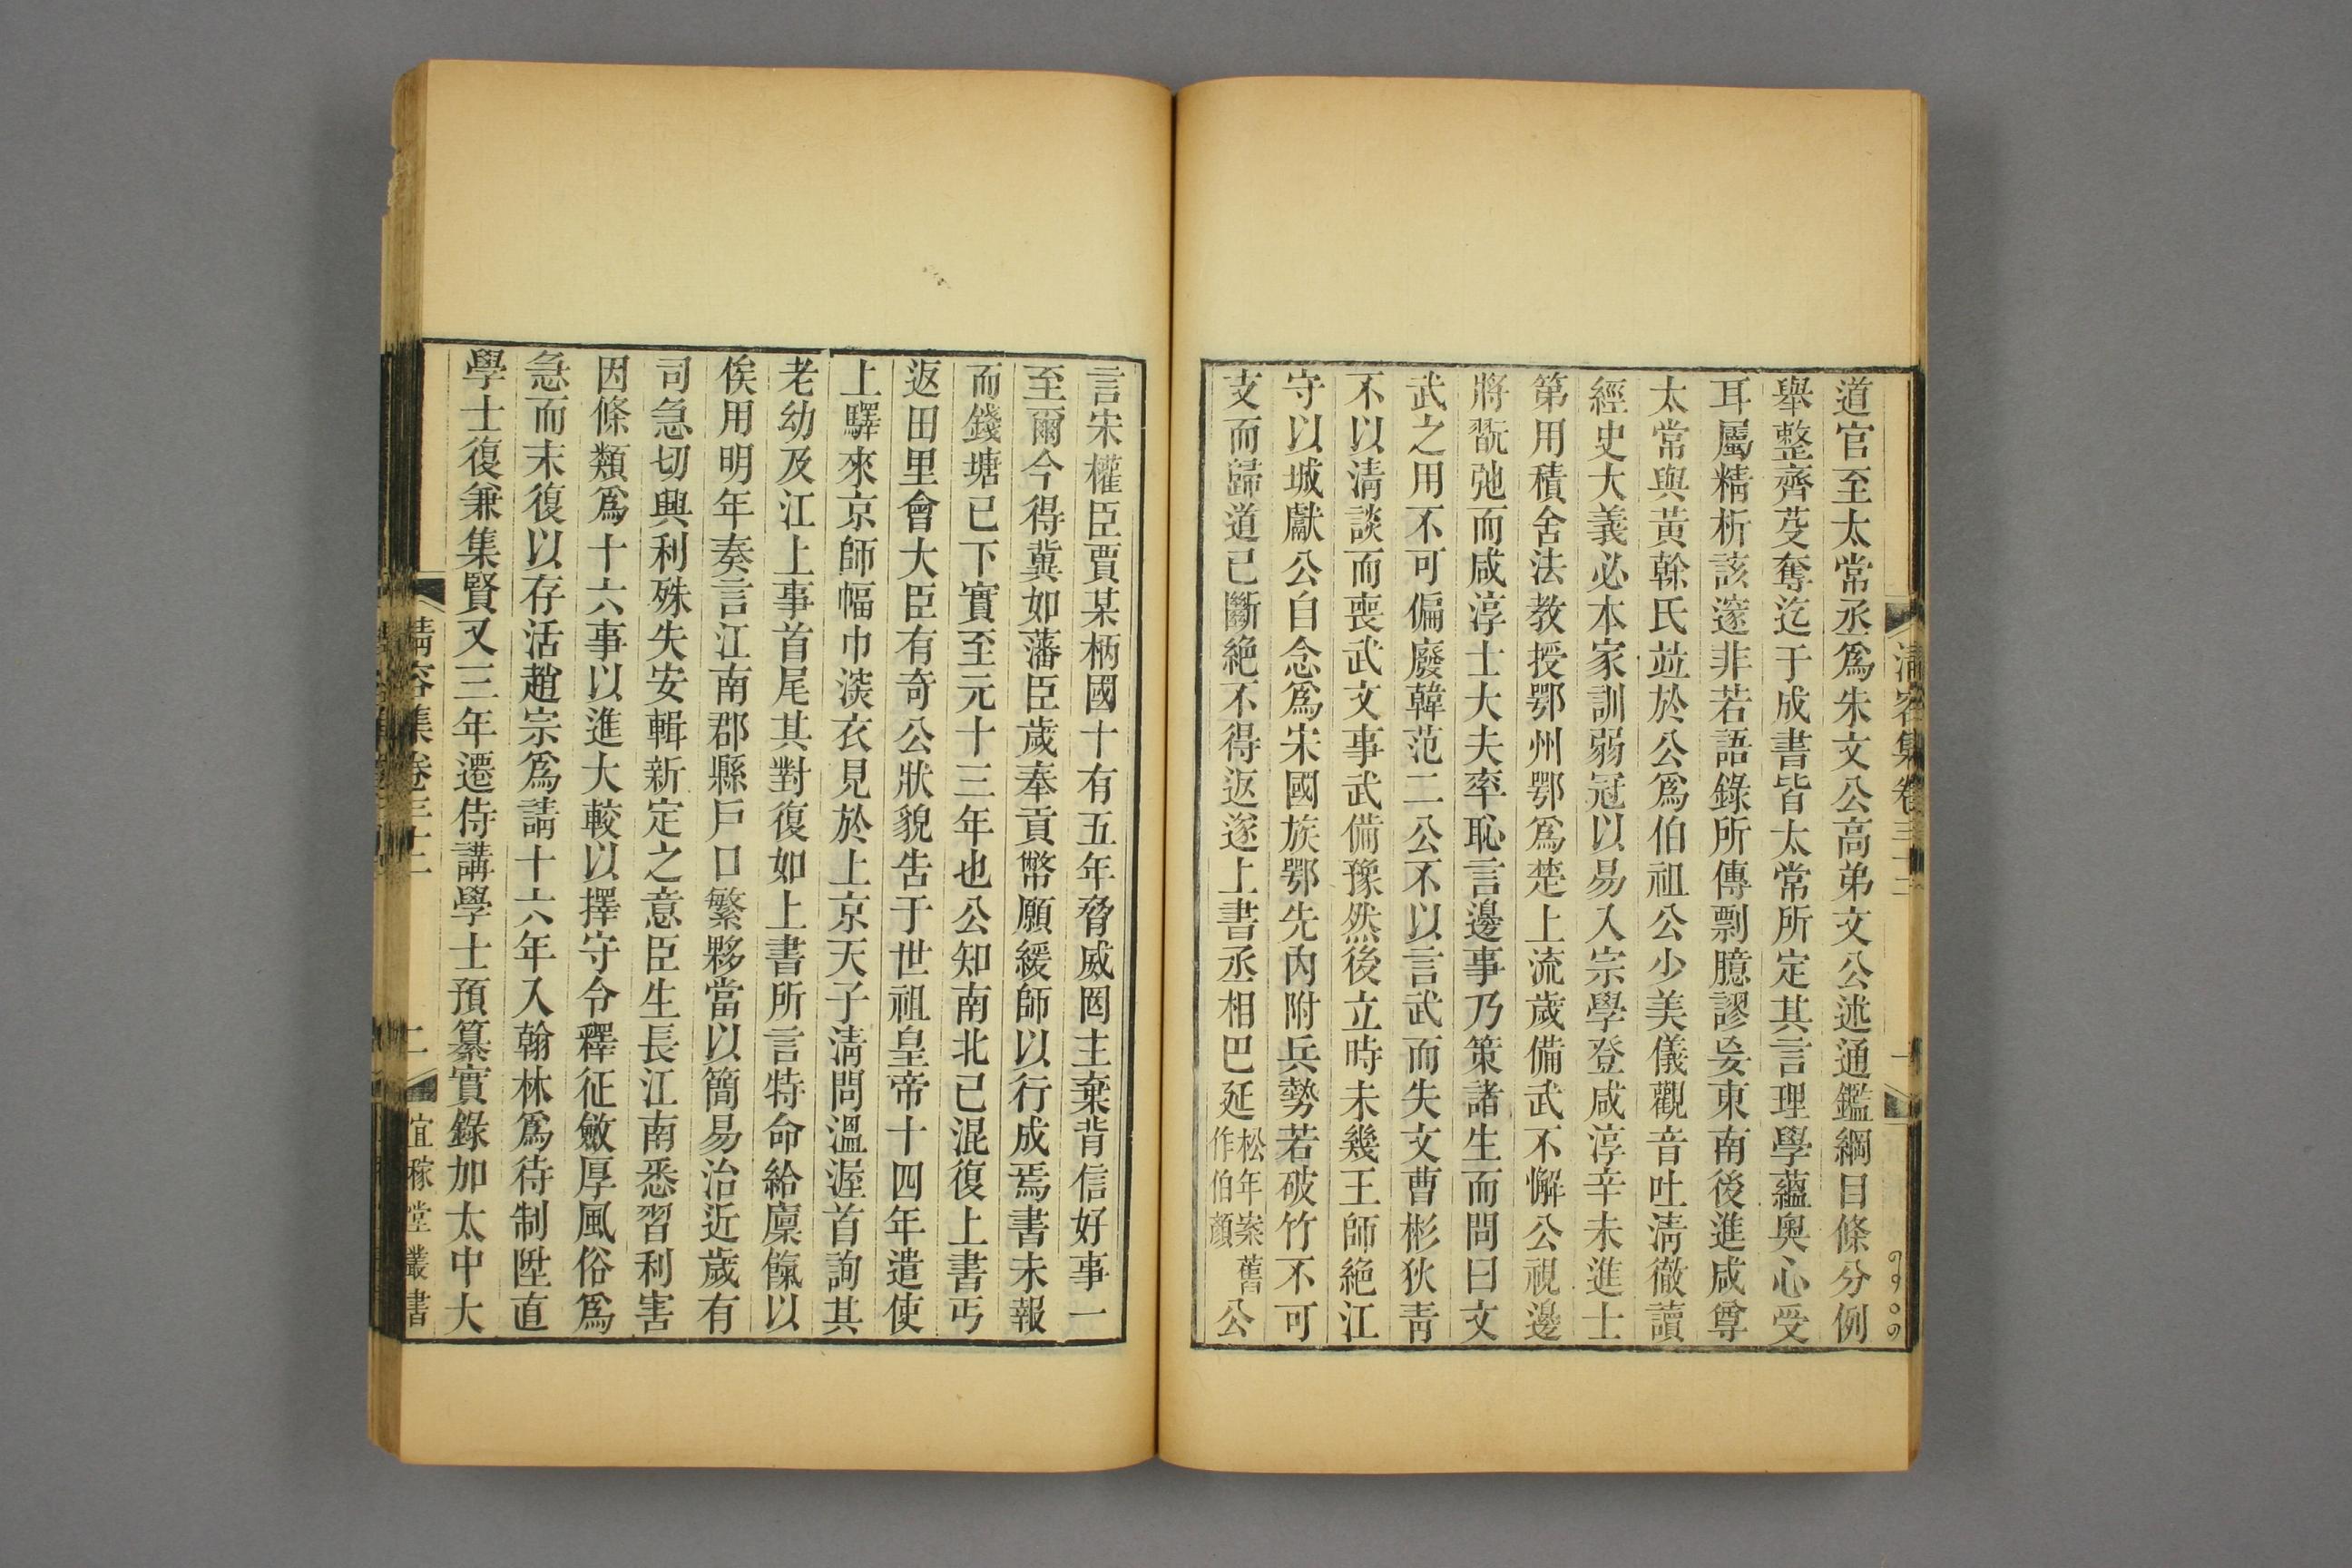 清容集卷三十二
一
道官至太常丞爲朱文公高弟文公述通鑑綱目條分例
舉整齊芟奪迄于成書皆太常所定其言理學蘊奧心受
耳屬精析該邃非若語錄所傳剽臆謬妄東南後進咸尊
太常與黃榦氏竝於公爲伯祖公少美儀觀音吐淸徹讀
經史大義必本家訓弱冠以易入宗學登咸淳辛未進士
第用積舍法教授鄂州鄂爲楚上流歲備武不懈公視邊
將翫弛而咸淳士大夫率恥言邊事乃策諸生而問曰文
武之用不可偏廢韓范二公不以言武而失文曹彬狄靑
不以淸談而喪武文事武備豫然後立時未幾王師絶江
守以城獻公自念爲宋國族鄂先內附兵勢若破竹不可
支而歸道已斷絶不得返遂上書丞相巴延松年案舊作伯顏公
言宋權臣賈某柄國十有五年脅威罔主棄背信好事一
至爾今得冀如藩臣歲奉貢幣願緩師以行成焉書未報
而錢塘已下實至元十三年也公知南北已混復上書丐
返田里會大臣有奇公狀貌告于世祖皇帝十四年遣使
上驛來京師幅巾淡衣見於上京天子淸問溫渥首詢其
老幼及江上事首尾其對復如上書所言特命給廩餼以
俟用明年奏言江南郡縣戶口繁夥當以簡易治近歲有
司急切興利殊失安輯新定之意臣生長江南悉習利害
因條類爲十六事以進大較以擇守令釋征斂厚風俗爲
急而末復以存活趙宗爲請十六年入翰林爲待制陞直
學士復兼集賢又三年遷侍講學士預纂實錄加太中大
清容集卷三十二
二
宜稼堂叢書